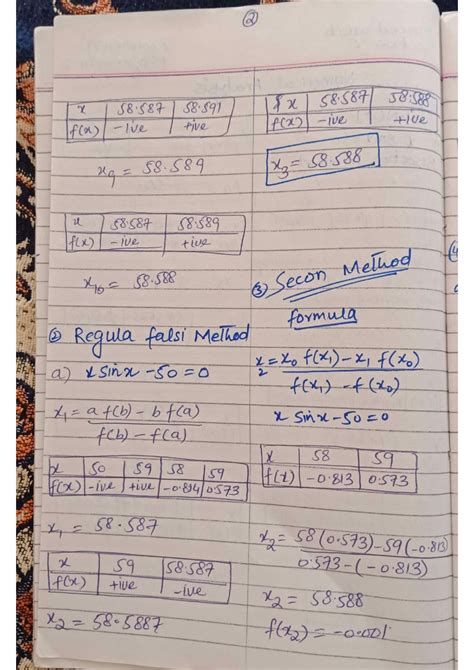 ②
x 58.587 58.591
f(x) -ive +ive
x9 = 58.589
x 58.587 58.589
f(x) -ive +ive
x10 = 58.588
② Regula falsi Method
a) x sinx - 50 = 0
x1 = a f(b) - b f(a)
f(b) - f(a)
x 50 59 58 59
f(x) -ive +ive -0.814 0.573
x1 = 58.587
x 59 58.587
f(x) +ive -ive
x2 = 58.5887
x 58.587 58.588
f(x) -ive +ive
x3 = 58.588
③ Secon Method
formula
x2 = x0 f(x1) - x1 f(x0)
f(x1) - f(x0)
x sinx - 50 = 0
x 58 59
f(x) -0.813 0.573
x2 = 58(0.573) - 59(-0.813)
0.573 - (-0.813)
x2 = 58.588
f(x2) = -0.001